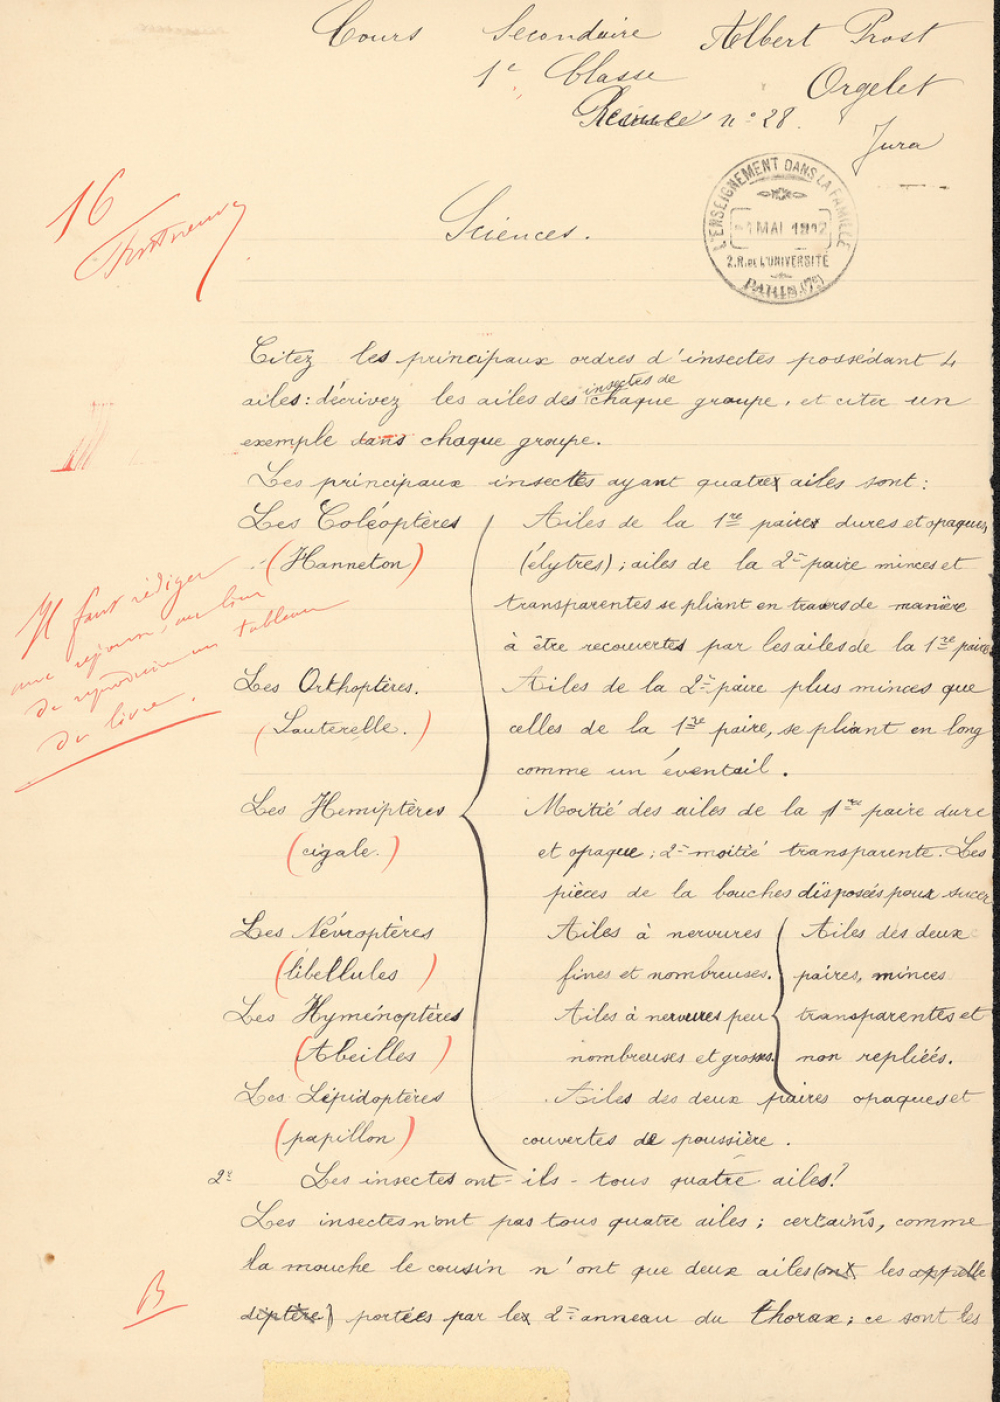 Cours Secondaire Albert Prost
1e Classe Orgelet
n° 28. Jura
16
L'ENSEIGNEMENT DANS LA FAMILLE
1 MAI 1912
2.R. DE L'UNIVERSITÉ
PARIS (7e)
Sciences.
Citez les principaux ordres d'insectes possédant 4
ailes: décrivez les ailes des insectes de chaque groupe, et citer un
exemple dans chaque groupe.
Les principaux insectes ayant quatre ailes sont:
Les Coléoptères
(Hanneton)
Ailes de la 1re paire dures et opaques,
(élytres); ailes de la 2e paire minces et
transparentes se pliant en travers de manière
à être recouvertes par les ailes de la 1re paire
Il faut rédiger
une réponse, au lieu
de reproduire un tableau
du livre.
Les Orthoptères.
(Sauterelle.)
Ailes de la 2e paire plus minces que
celles de la 1re paire, se pliant en long
comme un éventail.
Les Hemiptères
(cigale.)
Moitié des ailes de la 1re paire dure
et opaque; 2e moitié transparente. Les
pièces de la bouches disposées pour sucer
Les Névroptères
(libellules)
Ailes à nervures
fines et nombreuses.
Les Hyménoptères
(Abeilles)
Ailes à nervures peu
nombreuses et grosses.
Ailes des deux
paires, minces
transparentes et
non repliées.
Les Lépidoptères
(papillon)
Ailes des deux paires opaques et
couvertes de poussière.
2e Les insectes ont-ils-tous quatre ailes?
Les insectes n'ont pas tous quatre ailes; certains, comme
la mouche le cousin n'ont que deux ailes (ont les appelle
B
diptère) portées par le 2e anneau du thorax; ce sont les